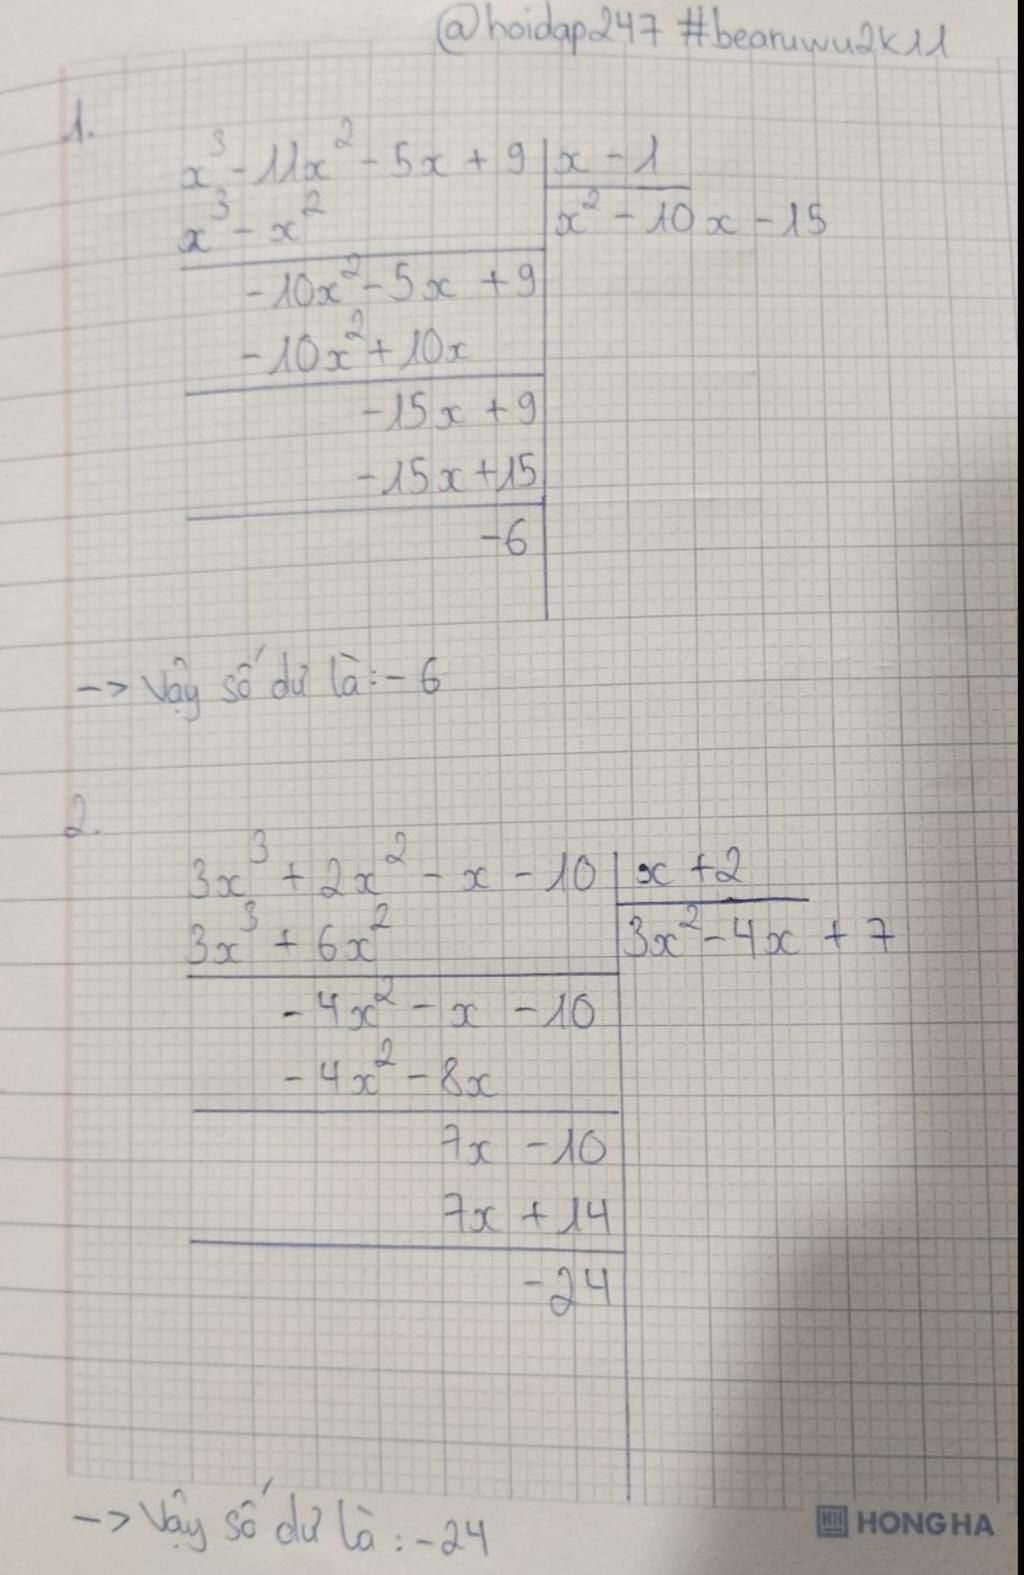 @hoidap247 #bearuwu2k11
1.
x³ - 11x² - 5x + 9 | x - 1
x³ - x² | x² - 10x - 15
-10x² - 5x + 9
-10x² + 10x
-15x + 9
-15x + 15
-6
-> Vậy số dư là: - 6
2.
3x³ + 2x² - x - 10 | x + 2
3x³ + 6x² | 3x² - 4x + 7
- 4x² - x - 10
- 4x² - 8x
7x - 10
7x + 14
-24
-> Vậy số dư là : -24
HH HONG HA